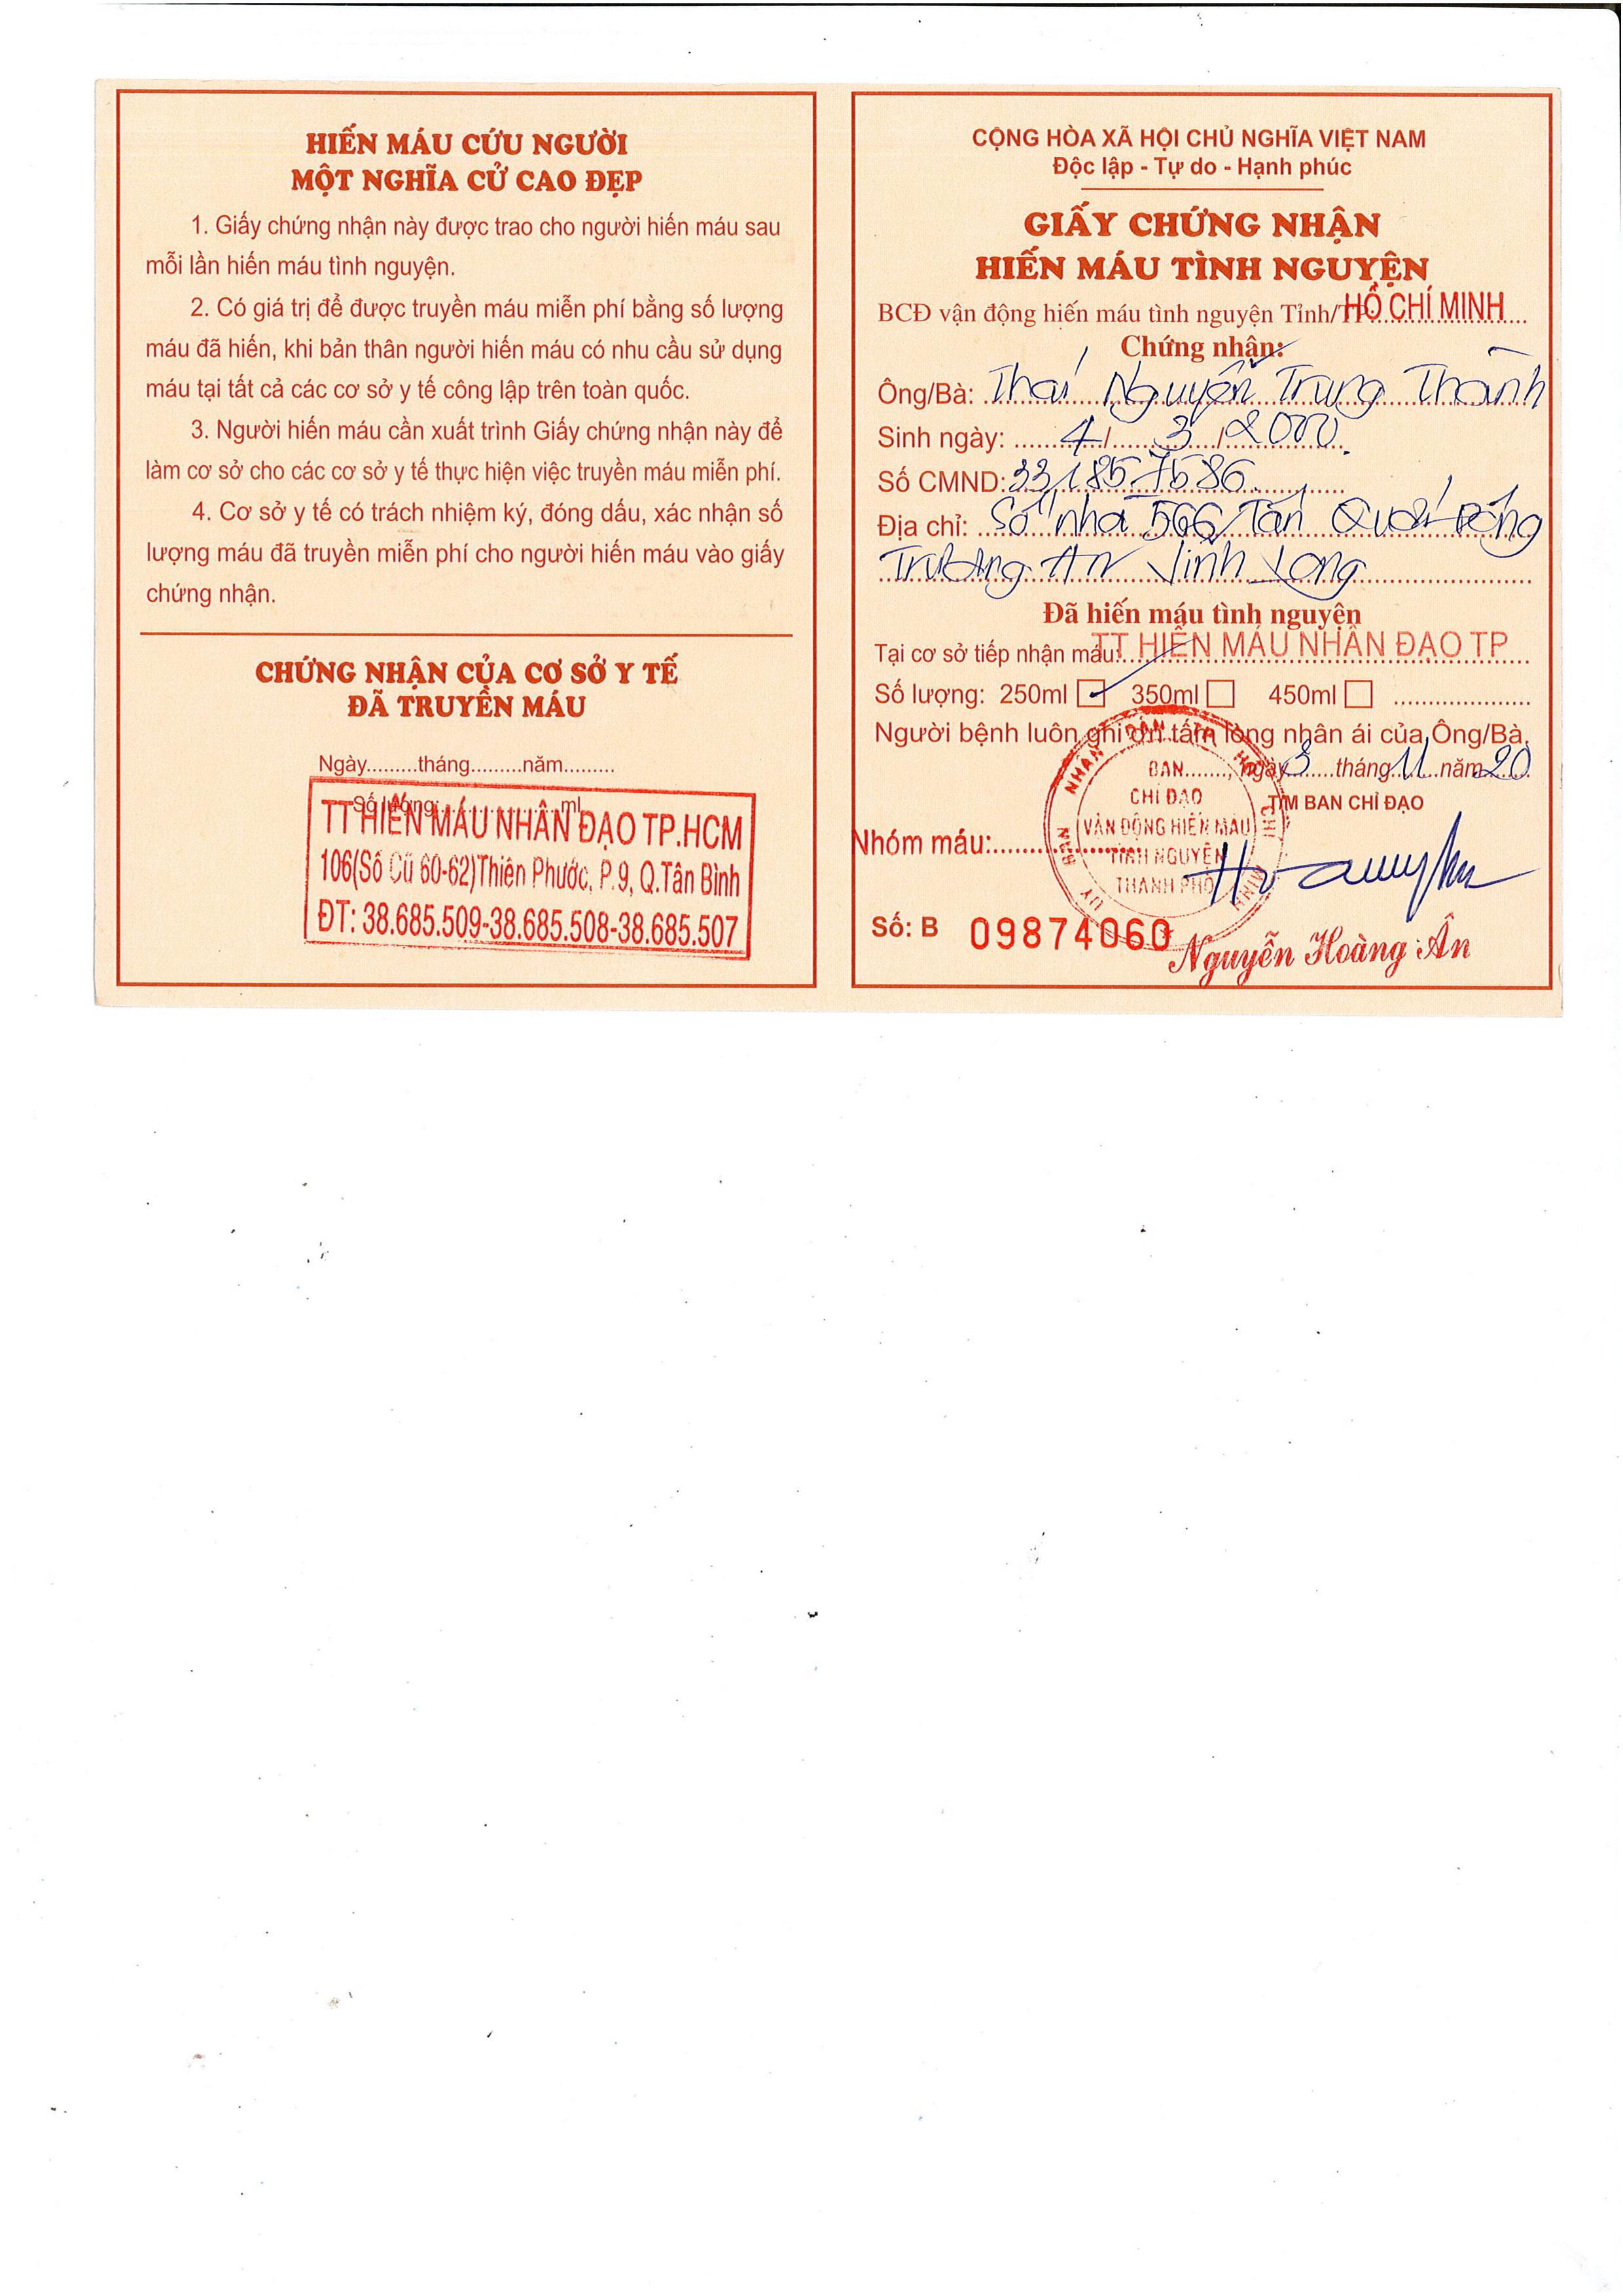 HIẾN MÁU CỨU NGƯỜI
MỘT NGHĨA CỬ CAO ĐẸP
1. Giấy chứng nhận này được trao cho người hiến máu sau
mỗi lần hiến máu tình nguyện.
2. Có giá trị để được truyền máu miễn phí bằng số lượng
máu đã hiến, khi bản thân người hiến máu có nhu cầu sử dụng
máu tại tất cả các cơ sở y tế công lập trên toàn quốc.
3. Người hiến máu cần xuất trình Giấy chứng nhận này để
làm cơ sở cho các cơ sở y tế thực hiện việc truyền máu miễn phí.
4. Cơ sở y tế có trách nhiệm ký, đóng dấu, xác nhận số
lượng máu đã truyền miễn phí cho người hiến máu vào giấy
chứng nhận.
CHỨNG NHẬN CỦA CƠ SỞ Y TẾ
ĐÃ TRUYỀN MÁU
Ngày.........tháng.........năm.........
Số lượng:.....................ml
TT HIẾN MÁU NHÂN ĐẠO TP.HCM
106(Số Cũ 60-62)Thiên Phước, P.9, Q.Tân Bình
ĐT: 38.685.509-38.685.508-38.685.507
CỘNG HÒA XÃ HỘI CHỦ NGHĨA VIỆT NAM
Độc lập - Tự do - Hạnh phúc
GIẤY CHỨNG NHẬN
HIẾN MÁU TÌNH NGUYỆN
BCĐ vận động hiến máu tình nguyện Tỉnh/TP HỒ CHÍ MINH
Chứng nhận:
Ông/Bà: Thái Nguyễn Trung Thành
Sinh ngày: 4/3/2000
Số CMND: 331857586
Địa chỉ: Số nhà 566 Tân Quới Đông
Trường An Vĩnh Long
Đã hiến máu tình nguyện
Tại cơ sở tiếp nhận máu: TT HIẾN MÁU NHÂN ĐẠO TP
Số lượng: 250ml ☑ 350ml ☐ 450ml ☐ ....................
Người bệnh luôn ghi ơn tấm lòng nhân ái của Ông/Bà.
ngày 3 tháng 11 năm 20
T/M BAN CHỈ ĐẠO
ỦY BAN NHÂN DÂN TP HỒ CHÍ MINH
BAN
CHỈ ĐẠO
VẬN ĐỘNG HIẾN MÁU
TÌNH NGUYỆN
THÀNH PHỐ
Nhóm máu:.....................
Số: B 09874060
Nguyễn Hoàng Ân